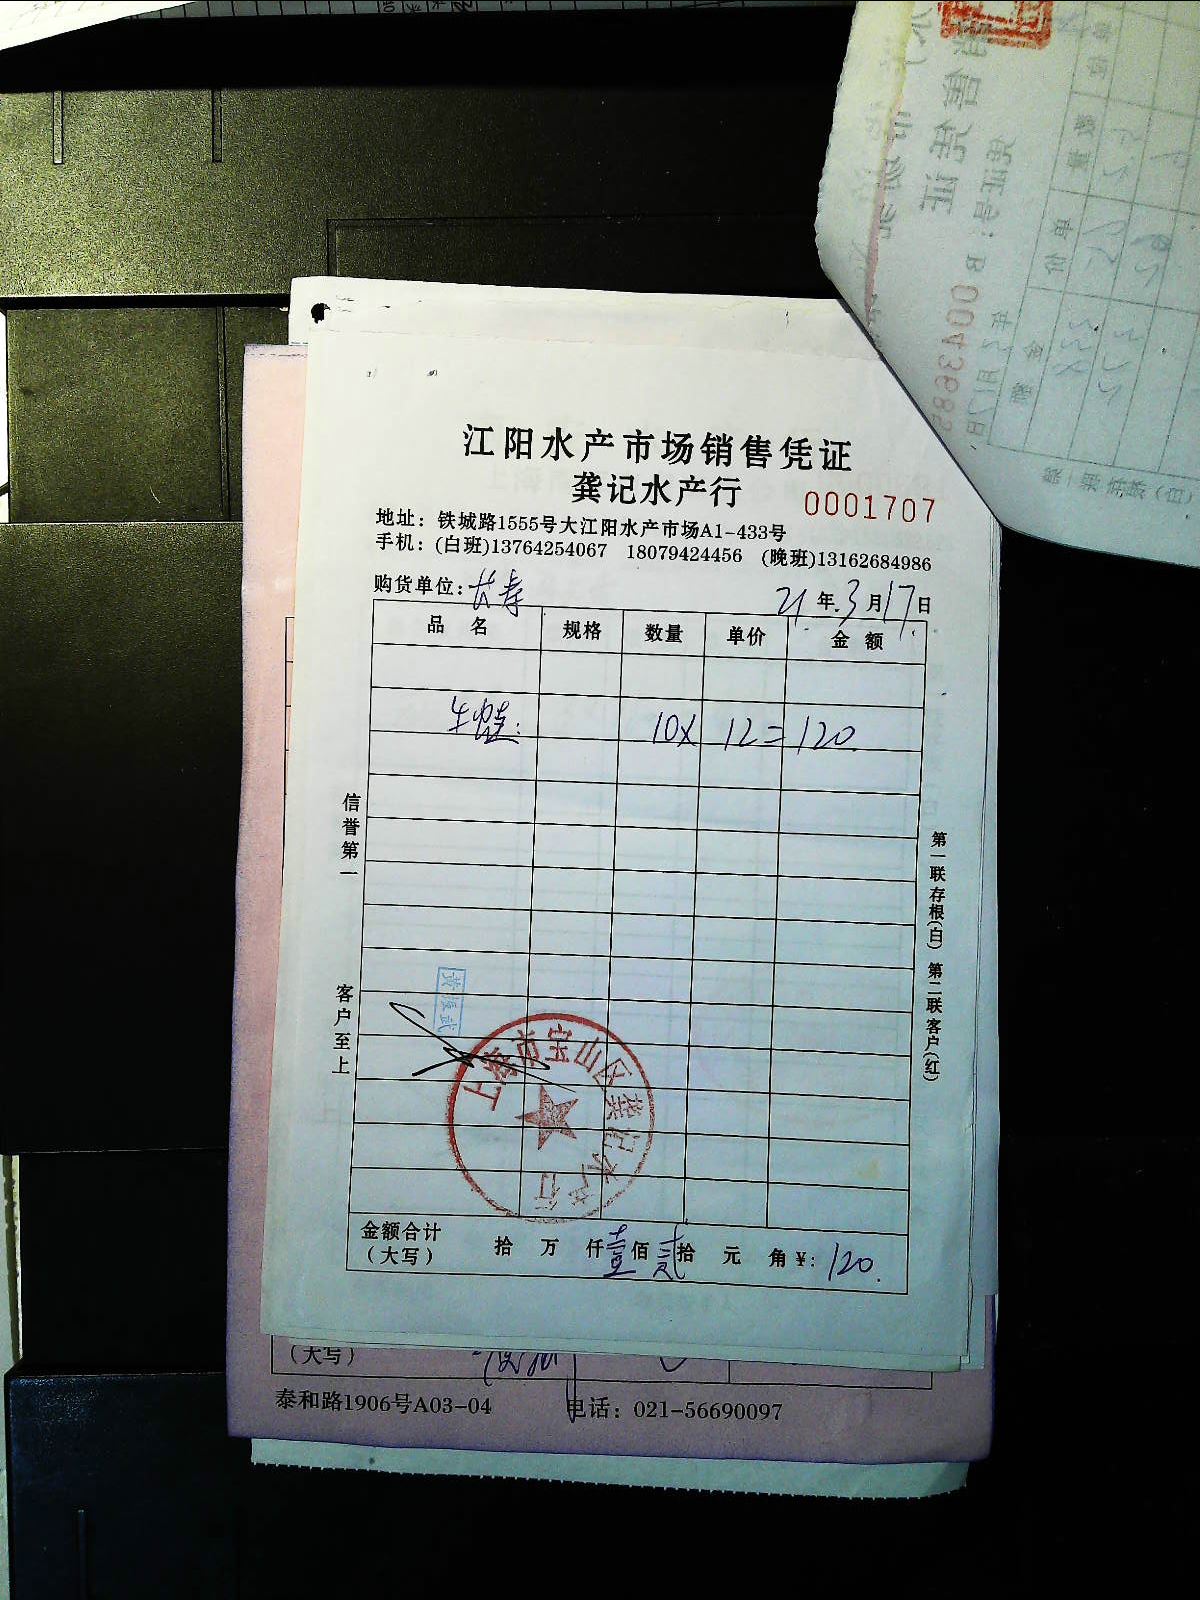 江阳水产市场销售凭证
龚记水产行 0001707
地址：铁城路1555号大江阳水产市场A1-433号
手机：(白班)13764254067 18079424456 (晚班)13162684986
购货单位：长寿 21年3月17日
品名 规格 数量 单价 金额
10X 12= 120
信誉第一 客户至上
第一联存根(白) 第二联客户(红)
黄振武
上海市宝山区龚记水产行
金额合计（大写） 拾 万 仟 壹佰 贰拾 元 角 ¥: 120.
（大写）
泰和路1906号A03-04 电话：021-56690097
B 0043685